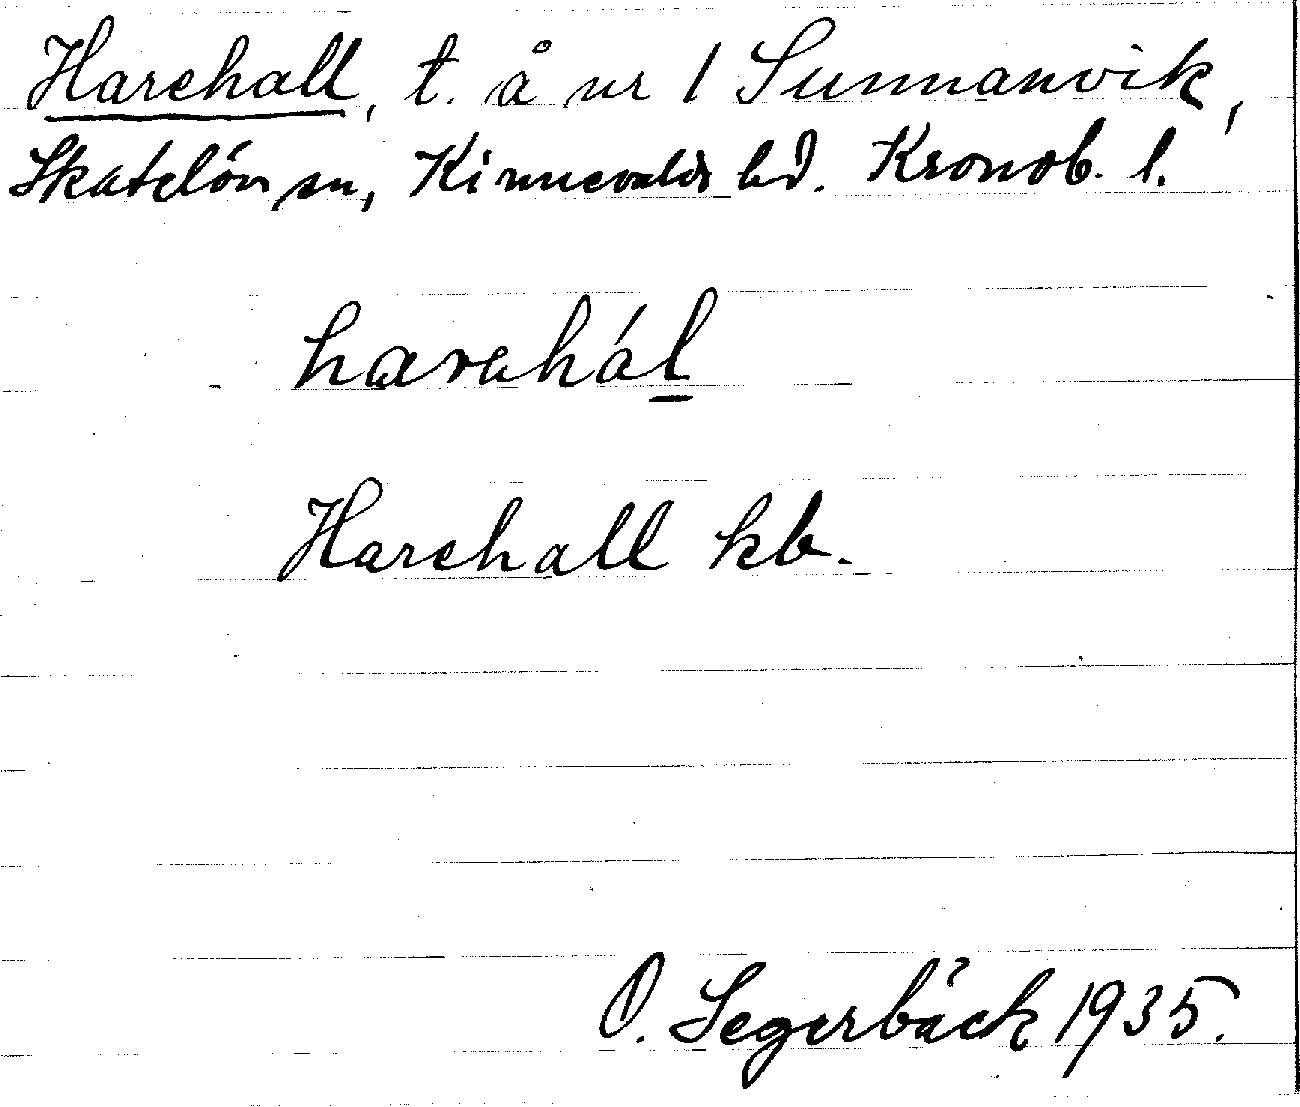 Harehall, t. å nr 1 Sunnanvik,
Skatelöv sn, Kinnevalds hd. Kronob. l.
harahál
Harehall kb.
O. Segerbäck 1935.